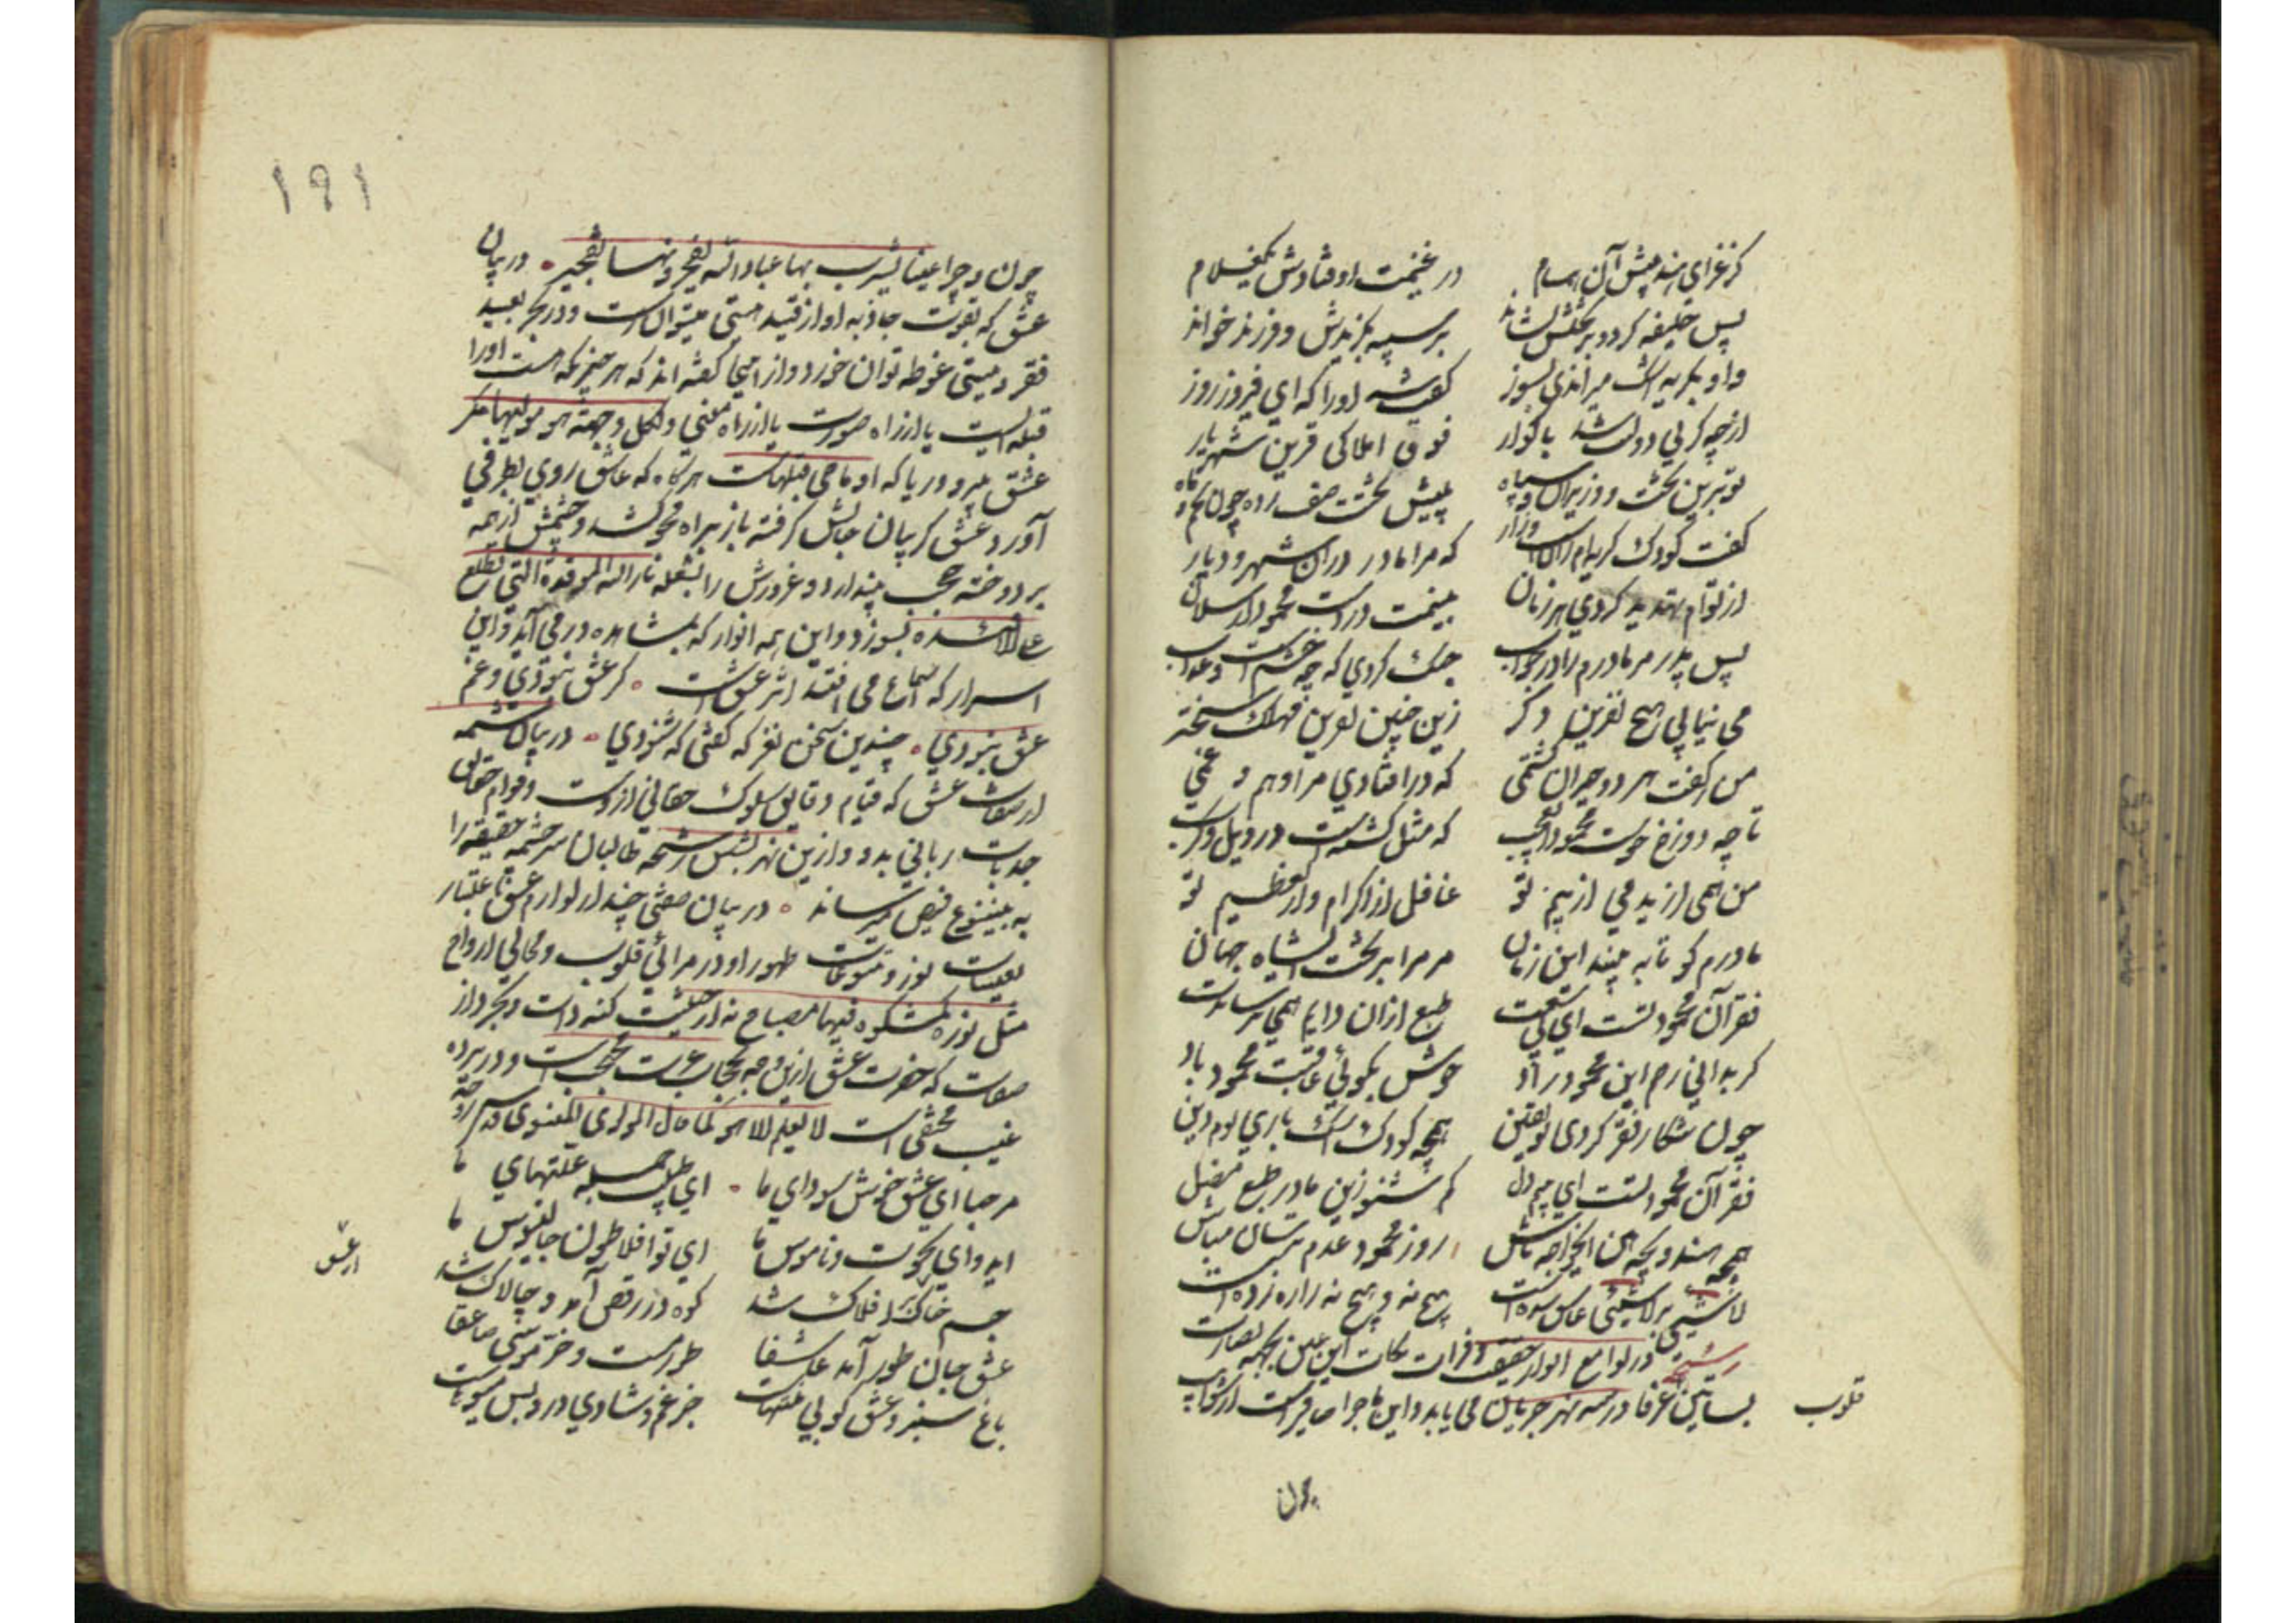 کز غزای هند پیش آن همام در غنیمت اوفتادش یک غلام
پس خلیفه کرد و بر تختش نشاند بر سپه بگزیدش و فرزند خواند
او بگریه اشک میراندی بسوز گفت شه او را که ای فیروز روز
از چه گریی دولتت شد ناگوار فوق املاکی قرین شهریار
تو برین تخت و وزیران و سپاه پیش تختت صف زده چون نجم و ماه
گفت کودک گریه ام زانست زار که مرا مادر دران شهر و دیار
از توام تهدید کردی هر زمان بینمت در دست محمود ارسلان
پس پدر مر مادرم را در جواب جنگ کردی که چه خشمست و عذاب
می نیابی هیچ نفرین دگر زین چنین نفرین مهلک سخته
من ز گفت هر دو حیران گشتمی که در افتادی مرا وهم و غمی
تا چه دوزخ خوست محمود ای عجب که مثل گشتست در ویل و کرب
من همی لرزیدمی از بیم تو غافل از اکرام و از تعظیم تو
مادرم کو تا به بیند این زمان مر مرا بر تخت ای شاه جهان
فقر آن محمود تست ای بی سعت طبع ازان دایم همی ترساندت
گر بدانی رحم این محمود راد خوش بگوئی عاقبت محمود باد
چون شکار فقر کردی تو یقین همچو کودک اشک باری یوم دین
فقر آن محمود تست ای بیم دل کم شنو زین مادر طبع مضل
همچو هندو بچه هین ای خواجه تاش روز محمود عدم ترسان مباش
لاشیئی بر لاشیئی عاشق شدست هیچ نه و هیچ نه را ره زدست
رشحه در لوامع انوار حقیقت
بساتین عرفا در سه نهر جریان می یابد و این ماجرا صافیست از شوایب
قلوب
چون
۱۹۱
چون و چرا عینا یشرب بها عباد الله یفجرونها تفجیرا در بیان
عشق که بقوت جاذبه او از قید هستی میتوان رست و در بحر بعید
فقر و نیستی غوطه توان خورد و از اینجا گفته اند که هر چیزیکه هست او را
قبله ایست یا از راه صورت یا از راه معنی و لکل وجهة هو مولیها مگر
عشق بیرو و ریا که او ماحی قبلهاست هرگاه که عاشق روی بطرفی
آورد عشق گریبان جانش گرفته باز براه محو کشد و چشمش از همه
بر دوخته حجب پندار و غرورش را بشعله نار الله الموقدة التی تطلع
علی الافئده بسوزد و این همه انوار که بمشاهده در می آید و این
اسرار که بسماع می افتد اثر عشق است گر عشق نبودی و غم
عشق نبودی چندین سخن نغز که گفتی که شنودی در بیان شمه
از صفات عشق که قیام دقایق سلوک حقانی ازوست و قوام حقایق
جذبات ربانی بدو و ازین نهر بشش رشحه طالبان سرچشمه حقیقه را
به ینبوع فیض میرساند در بیان صفتی چند از لوازم عشق باعتبار
تعینات نور و تنوعات ظهور او در مرائی قلوب و مجالی ارواح
مثل نوره کمشکوة فیها مصباح نه از حیثیت کنه ذات و تجرد از
صفات که حضرت عشق ازین وجه بحجاب عزت محتجب است و در پرده
غیب مختفی است لا یعلم الا هو کما قال المولوی المعنوی قدس سره
مرحبا ای عشق خوش سودای ما ای طبیب جمله علتهای ما
ای دوای نخوت و ناموس ما ای تو افلاطون و جالینوس ما
جسم خاک از عشق بر افلاک شد کوه در رقص آمد و چالاک شد
عشق جان طور آمد عاشقا طور مست و خر موسی صاعقا
باغ سبز عشق کو بی منتهاست جز غم و شادی درو بس میوهاست
از عشق